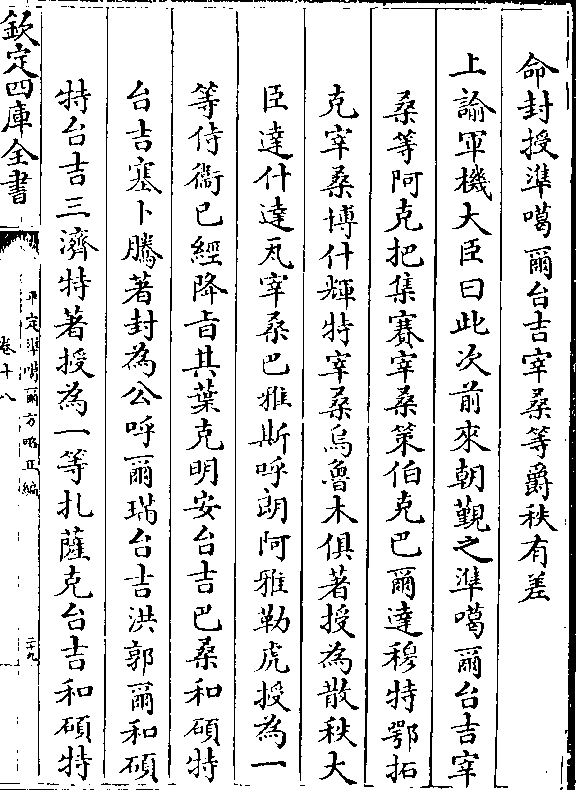 命封授準噶爾台吉宰桑等爵秩有差
上諭軍機大臣曰此次前來朝覲之準噶爾台吉宰
桑等阿克把集賽宰桑策伯克巴爾達穆特鄂拓
克宰桑博什輝特宰桑烏魯木俱著授為散秩大
臣達什達瓦宰桑巴雅斯呼朗阿雅勒虎授為一
等侍衞已經降㫖其葉克明安台吉巴桑和碩特
台吉塞卜騰著封為公呼爾瑞台吉洪郭爾和碩
特台吉三濟特著授為一等扎薩克台吉和碩特
欽定四庫全書
平定準噶爾方略正編
卷十八
二十九